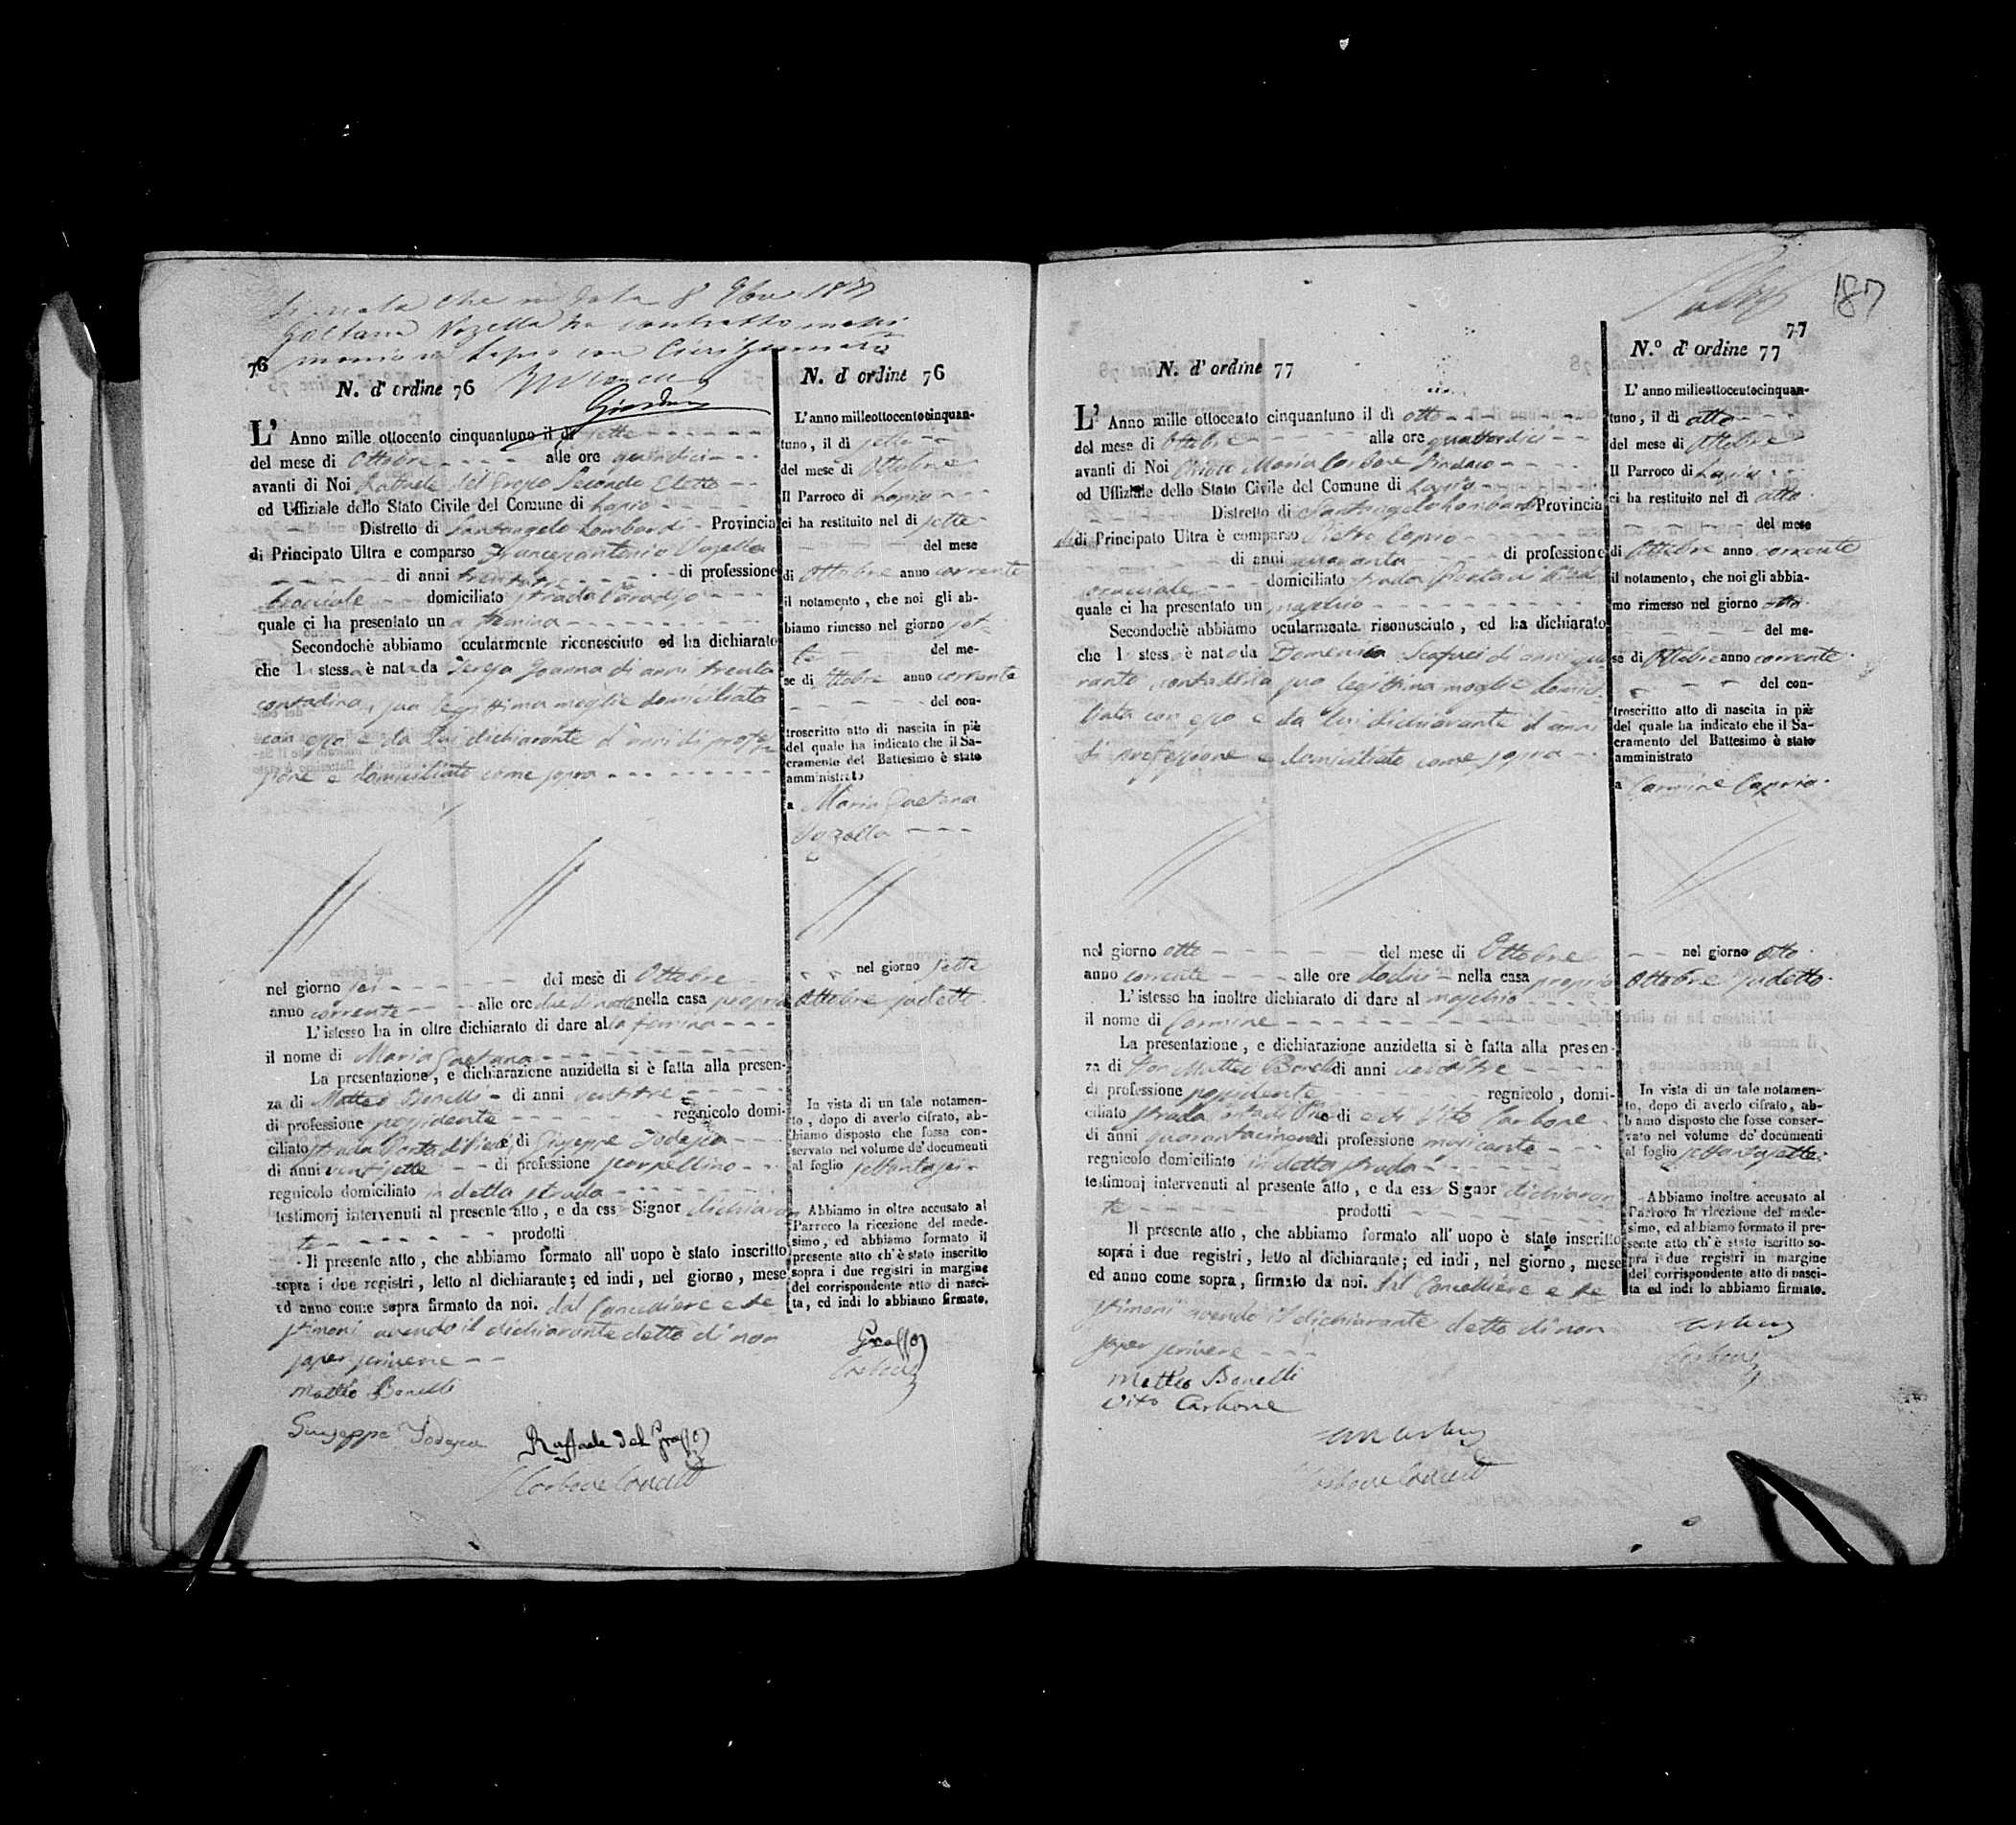 Si nota che in data 8 9bre 18
Gaetana Vozella ha contratto matri
monio in Lapio con Ciriaco
Giordano
76
N. d' ordine 76
L' Anno mille ottocento cinquantuno il dì sette
del mese di Ottobre alle ore quindici
avanti di Noi Raffaele del Grosso Secondo Eletto
ed Uffiziale dello Stato Civile del Comune di Lapio
Distretto di Santangelo Lombardi Provincia
di Principato Ultra e comparso Francescantonio Vozella
di anni trentatre di professione
bracciale domiciliato strada Paradiso
quale ci ha presentato una femina
Secondochè abbiamo ocularmente riconosciuto ed ha dichiarato
che la stessa è nata da Teresa Joanna di anni trenta
contadina, sua legittima moglie domiciliata
con esso e da lui dichiarante d'anni di profes
sione e domiciliato come sopra
nel giorno sei del mese di Ottobre
anno corrente alle ore due di notte nella casa propria
L'istesso ha in oltre dichiarato di dare alla femina
il nome di Maria Gaetana
La presentazione, e dichiarazione anzidetta si è fatta alla presen-
za di Matteo Bonelli di anni ventitre
di professione possidente regnicolo domi-
ciliato strada Porta di Piedi, e di Giuseppe Todesca
di anni ventisette di professione scarpellino
regnicolo domiciliato in detta strada
testimonj intervenuti al presente atto, e da ess Signor dichiaran
te prodotti
Il presente atto, che abbiamo formato all' uopo è stato inscritto
sopra i due registri, letto al dichiarante; ed indi, nel giorno, mese
ed anno come sopra firmato da noi. dal Cancelliere e te
stimoni avendo il dichiarante detto di non
saper scrivere
Matteo Bonelli
Giuseppe Todesca
Raffaele del Grosso
Carbone Cancell
N. d' ordine 76
L' anno milleottocentocinquan-
tuno, il dì sette
del mese di Ottobre
Il Parroco di Lapio
ci ha restituito nel dì sette
del mese
di Ottobre anno corrente
il notamento, che noi gli ab-
biamo rimesso nel giorno set-
te del me-
se di Ottobre anno corrente
del con-
troscritto atto di nascita in piè
del quale ha indicato che il Sa-
cramento del Battesimo è stato
amministrato
a Maria Gaetana
Vozella
nel giorno sette
Ottobre sudetto
In vista di un tale notamen-
to, dopo di averlo cifrato, ab-
biamo disposto che fosse con-
servato nel volume de' documenti
al foglio settantasei
Abbiamo in oltre accusato al
Parroco la ricezione del mede-
simo, ed abbiamo formato il
presente atto ch' è stato inscritto
sopra i due registri in margine
del corrispondente atto di nasci-
ta, ed indi lo abbiamo firmato.
Grosso
Carbone
187
77
N. d' ordine 77
L' Anno mille ottocento cinquantuno il dì otto
del mese di Ottobre alle ore quattordici
avanti di Noi Maria Carbone Sindaco
ed Uffiziale dello Stato Civile del Comune di Lapio
Distretto di Santangelo Lombardi Provincia
di Principato Ultra è comparso Pietro Caprio
di anni quaranta di professione
bracciale domiciliato strada Porta di Piedi
quale ci ha presentato un maschio
Secondochè abbiamo ocularmente risonosciuto, ed ha dichiarato
che l stess è nato da Domenica Scafuri di anni qua
ranta, contadina sua legittima moglie domici
liata con esso e da lui dichiarante d'anni
di professione e domiciliato come sopra
nel giorno otto del mese di Ottobre
anno corrente alle ore dodici nella casa propria
L'istesso ha inoltre dichiarato di dare al maschio
il nome di Carmine
La presentazione, e dichiarazione anzidetta si è fatta alla presen-
za di Don Matteo Bonelli di anni ventitre
di professione possidente regnicolo, domi-
ciliato strada Porta di Piedi e di Vito Carbone
di anni quarantacinque di professione
regnicolo domiciliato in detta strada
testimonj intervenuti al presente atto, e da ess Signor dichiaran
te prodotti
Il presente atto, che abbiamo formato all' uopo è stato inscritto
sopra i due registri, letto al dichiarante; ed indi, nel giorno, mese
ed anno come sopra, firmato da noi. dal Cancelliere e te
stimoni avendo il dichiarante detto di non
saper scrivere
Matteo Bonelli
Vito Carbone
Carbone Cancell
N.° d' ordine 77
L' anno milleottocentocinquan-
tuno, il dì otto
del mese di Ottobre
Il Parroco di Lapio
ci ha restituito nel dì otto
del mese
di Ottobre anno corrente
il notamento, che noi gli abbia-
mo rimesso nel giorno otto
del me-
se di Ottobre anno corrente
del con-
troscritto atto di nascita in piè
del quale ha indicato che il Sa-
cramento del Battesimo è stato
amministrato
a Carmine Caprio
nel giorno otto
Ottobre sudetto
In vista di un tale notamen-
to, dopo di averlo cifrato, ab-
biamo disposto che fosse conser-
vato nel volume de' documenti
al foglio settantasette
Abbiamo inoltre accusato al
Parroco la ricezione del mede-
simo, ed abbiamo formato il pre-
sente atto ch' è stato iscritto so-
pra i due registri in margine
del corrispondente atto di nasci-
ta ed indi lo abbiamo firmato.
Carbone